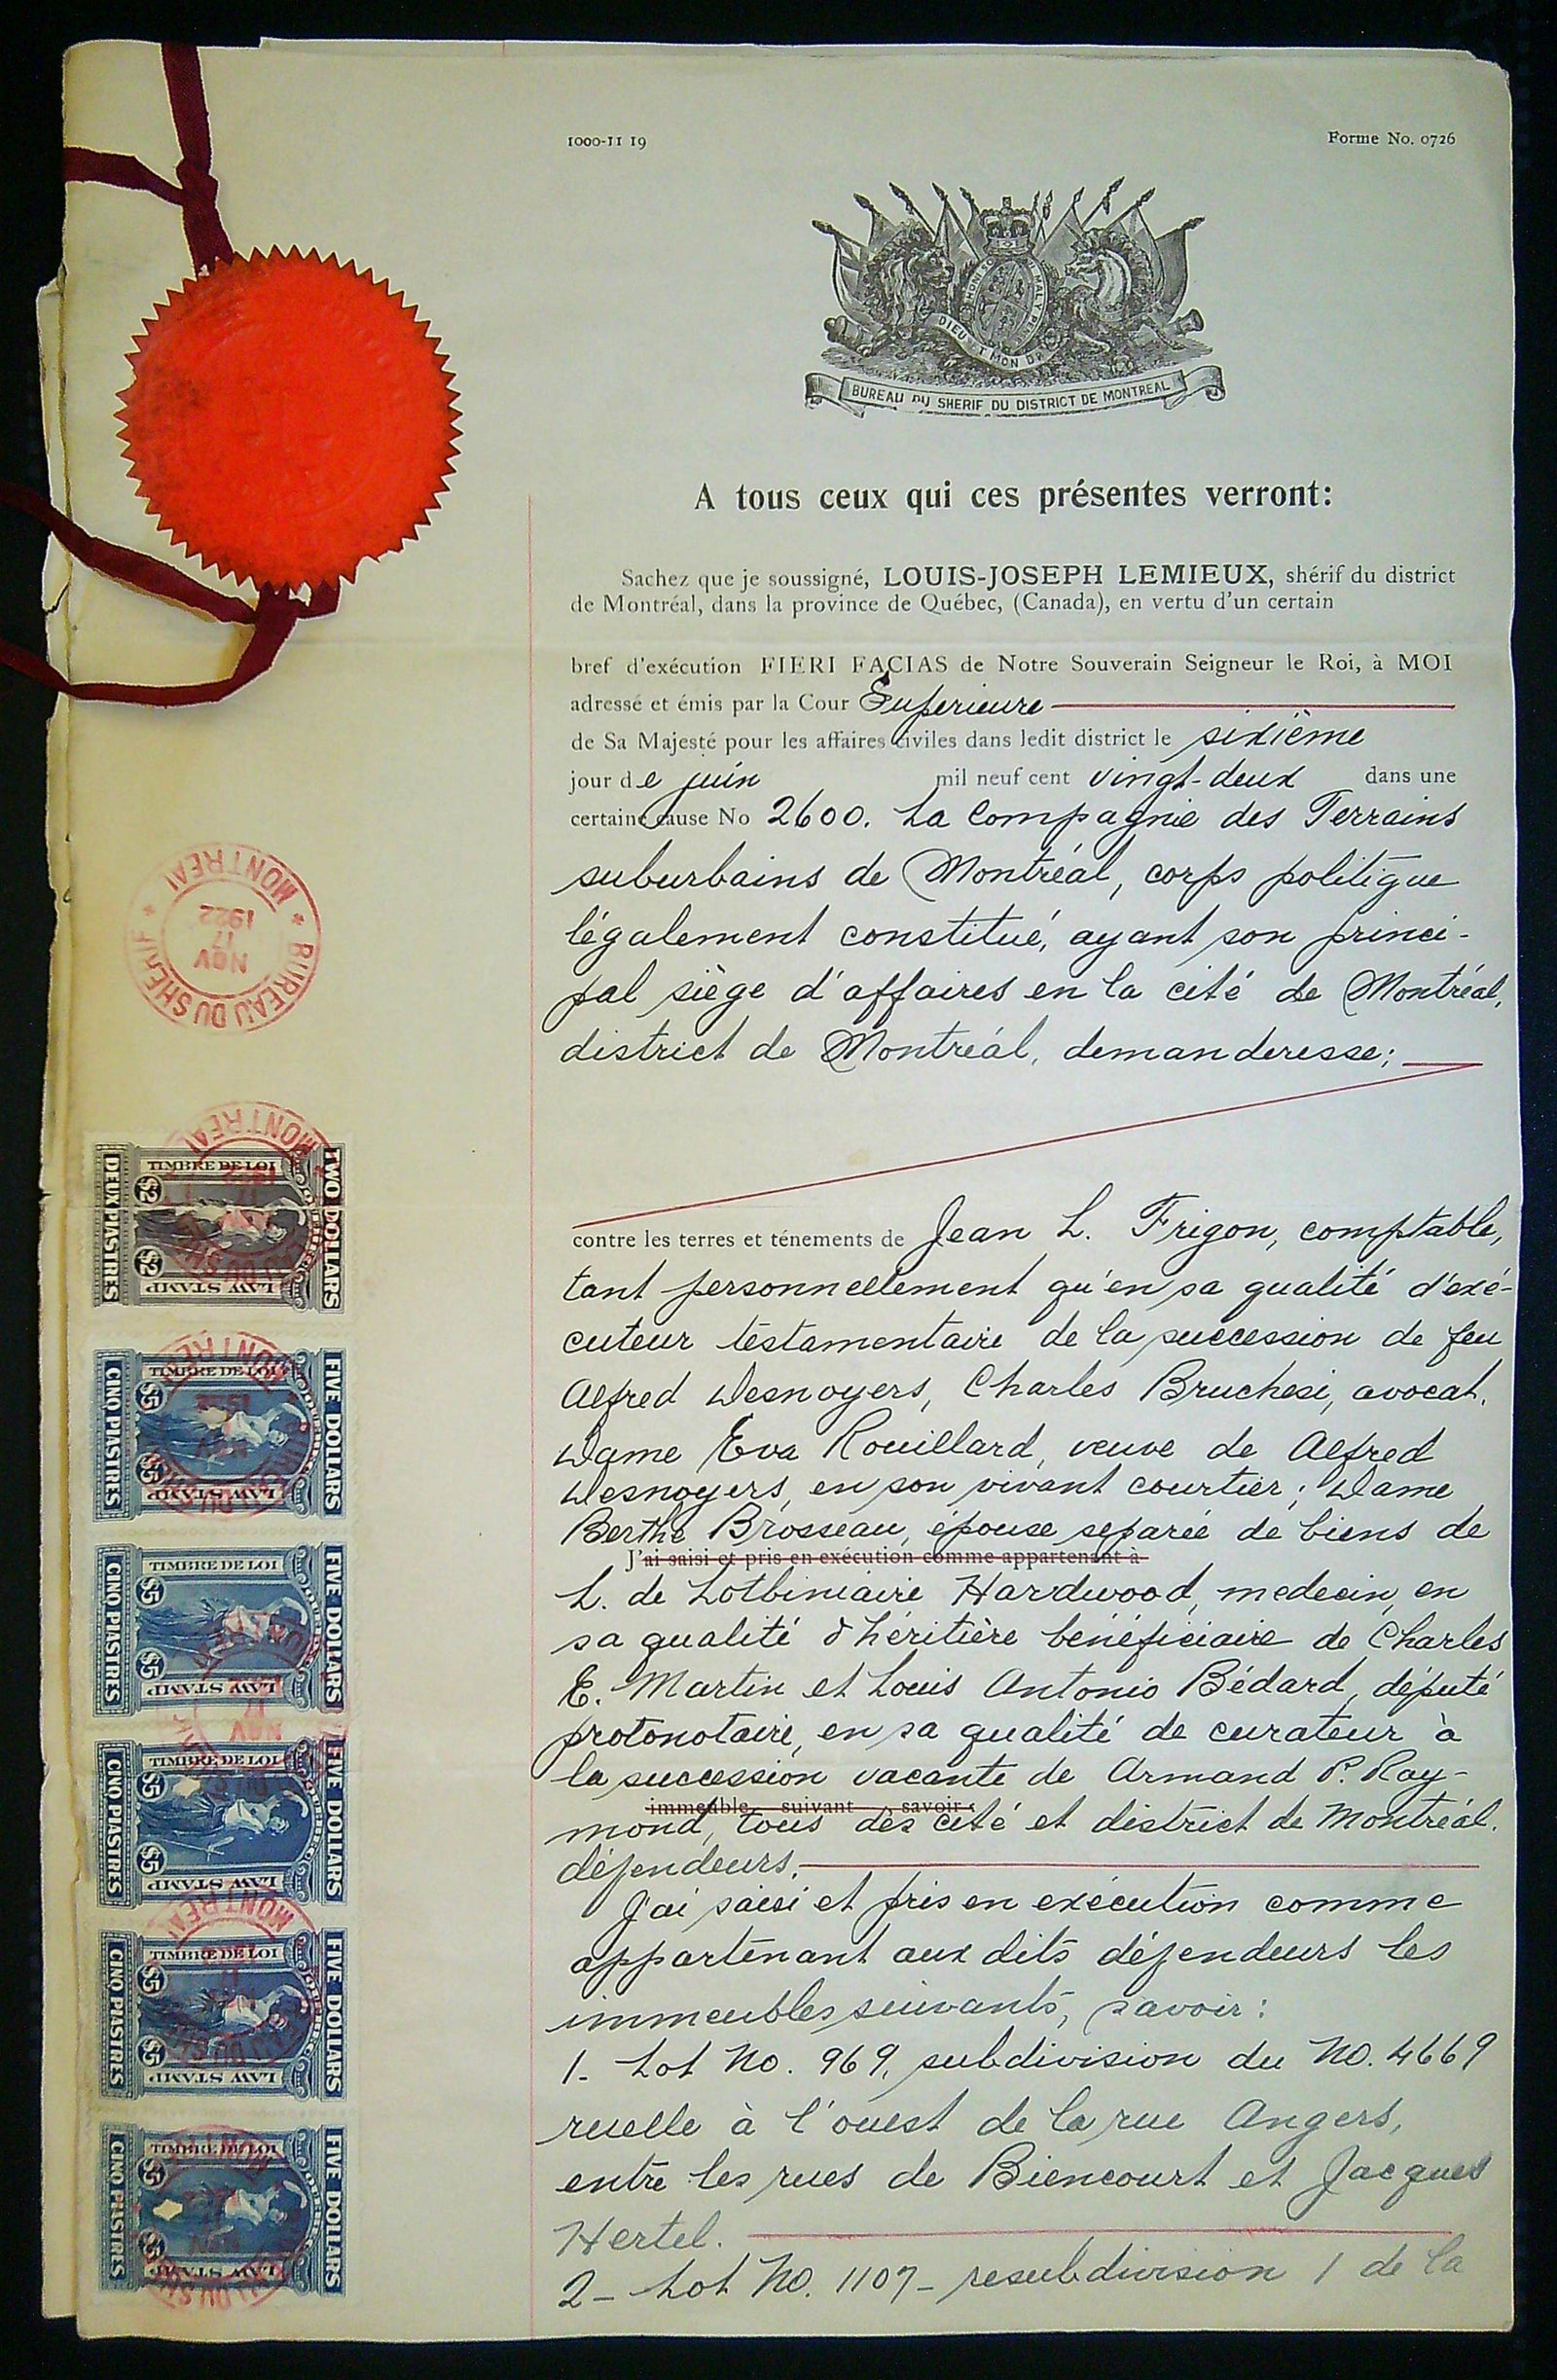 1000-11 19
Forme No. 0726
HONI
MAL Y
DIEU ET MON DR
BUREAU DU SHERIF DU DISTRICT DE MONTREAL
A tous ceux qui ces présentes verront:
Sachez que je soussigné, LOUIS-JOSEPH LEMIEUX, shérif du district
de Montréal, dans la province de Québec, (Canada), en vertu d'un certain
bref d'exécution FIERI FACIAS de Notre Souverain Seigneur le Roi, à MOI
adressé et émis par la Cour Superieure
de Sa Majesté pour les affaires civiles dans ledit district le sixième
jour de juin mil neuf cent vingt-deux dans une
certaine cause No 2600. La Compagnie des Terrains
suburbains de Montréal, corps politique
légalement constitué, ayant son princi-
pal siège d'affaires en la cité de Montréal,
district de Montréal, demanderesse;
contre les terres et ténements de Jean L. Frigon, comptable,
tant personnellement qu'en sa qualité d'exé-
cuteur testamentaire de la succession de feu
Alfred Desnoyers, Charles Bruchesi, avocat,
Dame Eva Rouillard, veuve de Alfred
Desnoyers, en son vivant courtier; Dame
Berthe Brosseau, épouse separée de biens de
J'ai saisi et pris en exécution comme appartenant à
L. de Lotbiniaire Hardwood, medecin, en
sa qualité d'héritière bénéficiaire de Charles
E. Martin et Louis Antonio Bédard, député
protonotaire, en sa qualité de curateur à
la succession vacante de Armand P. Ray-
immeuble suivant savoir:
mond, tous des cité et district de Montréal.
défendeurs.
J'ai saisi et pris en exécution comme
appartenant aux dits défendeurs les
immeubles suivants, savoir:
1- Lot No. 969, subdivision du No. 4669
ruelle à l'ouest de la rue Angers,
entre les rues de Biencourt et Jacques
Hertel.
2- Lot No. 1107- resubdivision 1 de la
BUREAU DU SHERIF
MONTREAL
NOV
17
1922
TWO DOLLARS
TIMBRE DE LOI
$2
$2
LAW STAMP
DEUX PIASTRES
FIVE DOLLARS
TIMBRE DE LOI
$5
$5
LAW STAMP
CINQ PIASTRES
FIVE DOLLARS
TIMBRE DE LOI
$5
$5
LAW STAMP
CINQ PIASTRES
FIVE DOLLARS
TIMBRE DE LOI
$5
$5
LAW STAMP
CINQ PIASTRES
FIVE DOLLARS
TIMBRE DE LOI
$5
$5
LAW STAMP
CINQ PIASTRES
FIVE DOLLARS
TIMBRE DE LOI
$5
$5
LAW STAMP
CINQ PIASTRES